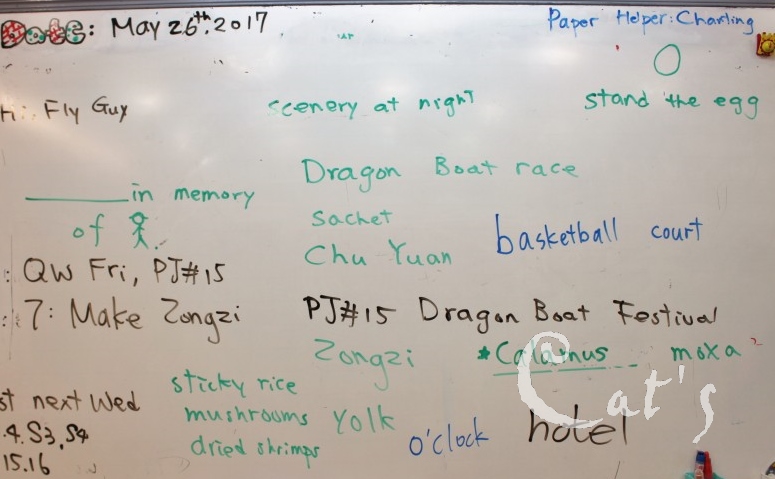 Date: May 26th, 2017
Paper Helper: Charling
Fly Guy
scenery at night
stand the egg
Dragon Boat race
in memory
of
Sachet
basketball court
Chu Yuan
QW Fri, PJ#15
7: Make Zongzi
PJ#15 Dragon Boat Festival
Zongzi
*Calamus moxa
sticky rice
next Wed
mushrooms yolk
Cat's
4. S3, S4
dried shrimps
o'clock
hotel
15.16